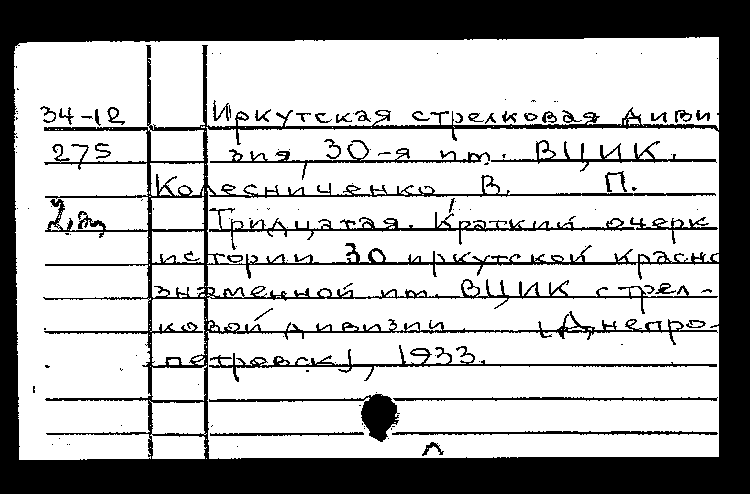 34-12 Иркутская стрелковая диви-
275 зия, 30-я им. ВЦИК.
Колесниченко, В. П.
Тридцатая. Краткий очерк
истории 30 иркутской красно
знаменной им. ВЦИК стрел-
ковой дивизии. [Днепро-
петровск], 1933.